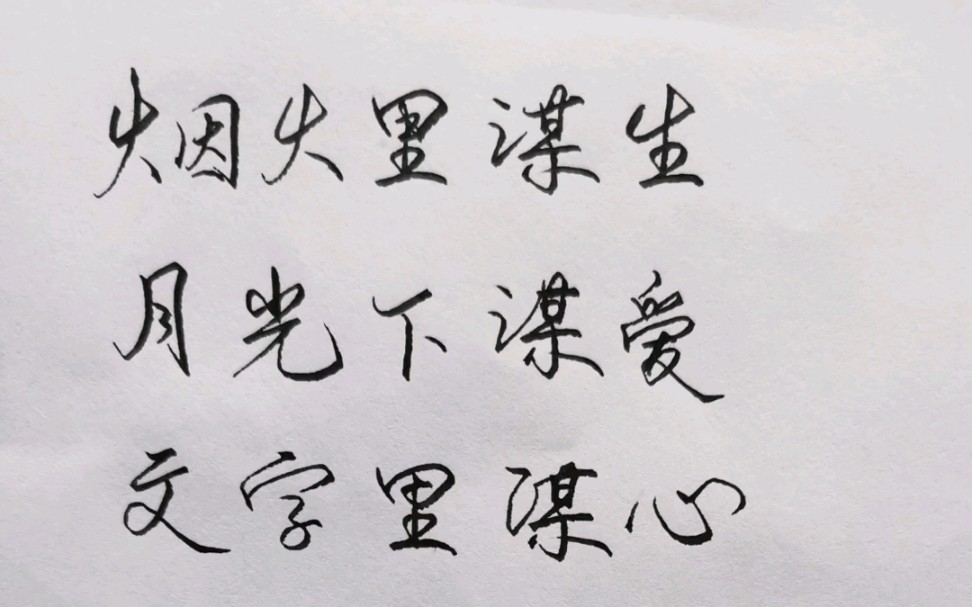 烟火里谋生
月光下谋爱
文字里谋心